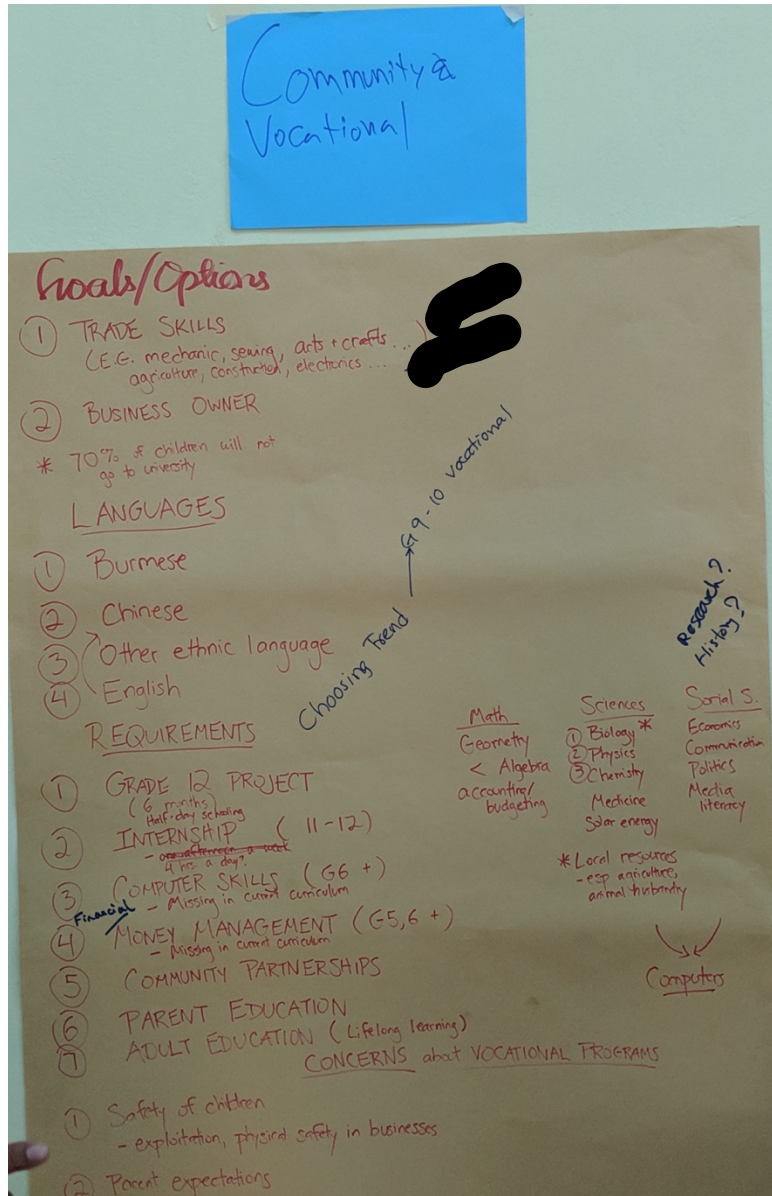 Community &
Vocational
Goals/Options
① TRADE SKILLS
(E.G. mechanic, sewing, arts + crafts ... )
agriculture, construction, electronics ...
② BUSINESS OWNER
* 70% of children will not
go to university
LANGUAGES
① Burmese
② Chinese
③ Other ethnic language
④ English
Choosing Trend → G9-10 vocational
REQUIREMENTS
① GRADE 12 PROJECT
(6 months)
Half-day schooling
② INTERNSHIP (11-12)
- one afternoon a week
4 hrs a day?
③ COMPUTER SKILLS (G6 +)
- Missing in current curriculum
Financial
④ MONEY MANAGEMENT (G5,6 +)
- Missing in current curriculum
⑤ COMMUNITY PARTNERSHIPS
⑥ PARENT EDUCATION
⑦ ADULT EDUCATION (Lifelong learning)
Math
Geometry
< Algebra
accounting/
budgeting
Sciences
① Biology *
② Physics
③ Chemistry
Medicine
Solar energy
* Local resources
- esp agriculture,
animal husbandry
Research?
History?
Social S.
Economics
Communication
Politics
Media
literacy
Computers
CONCERNS about VOCATIONAL PROGRAMS
① Safety of children
- exploitation, physical safety in businesses
② Parent expectations